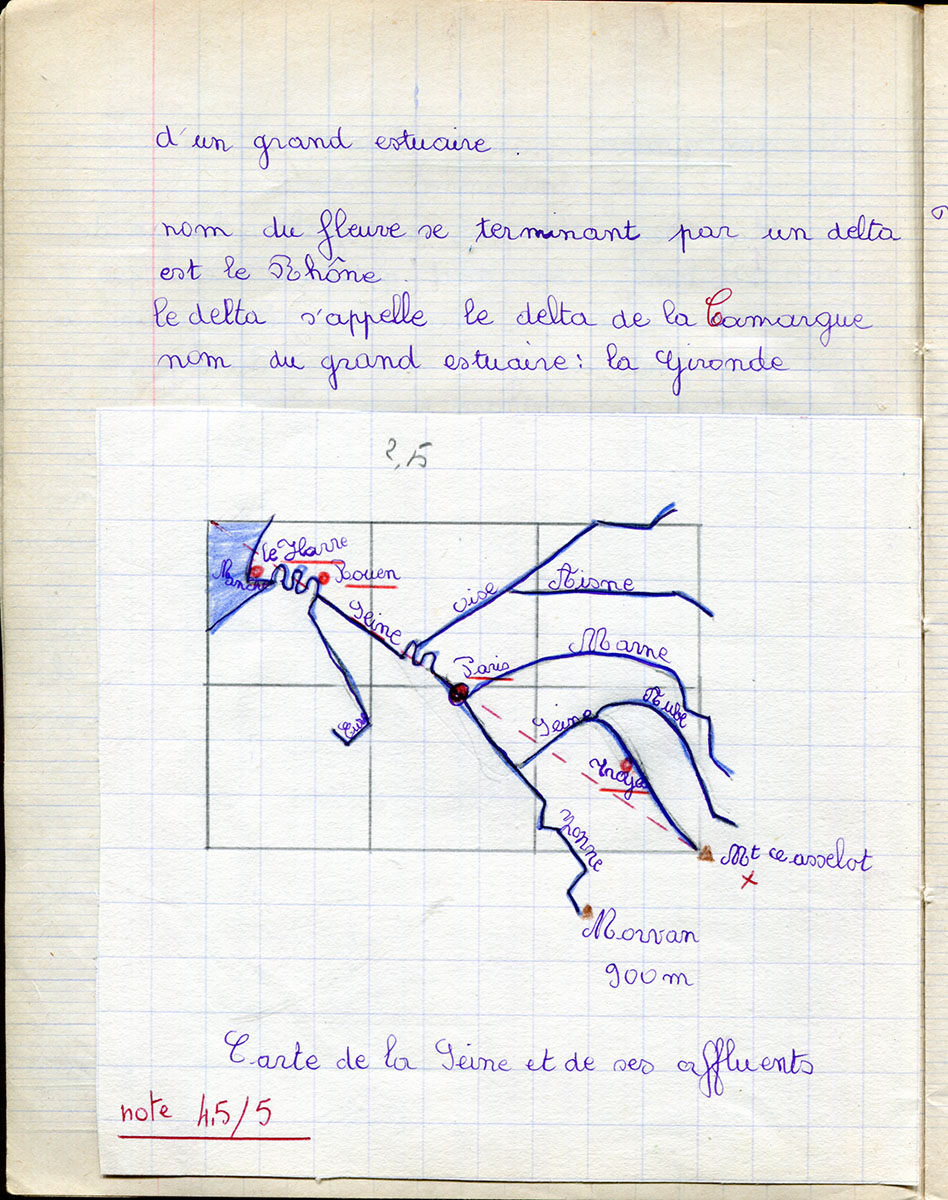 d'un grand estuaire.
nom du fleuve se terminant par un delta
est le Rhône.
le delta s'appelle le delta de la Camargue
nom du grand estuaire : la Gironde
2,5
le Havre
Manche
Rouen
Oise
Aisne
Seine
Marne
Paris
Aube
Seine
Eure
Troyes
Yonne
Mt Tasselot
x
Morvan
900 m
Carte de la Seine et de ses affluents
note 4,5/5